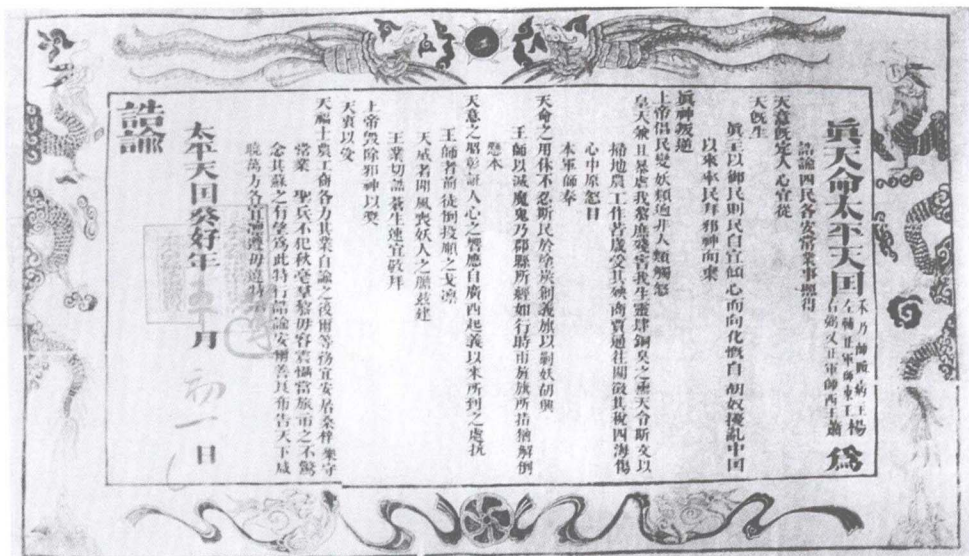 眞天命太平天囯
禾乃師贖病主
左輔正軍師東王楊
右弼又正軍師西王蕭
爲
誥諭四民各安常業事照得
天意旣定人心宜從
天旣生
眞主以御民則民自宜傾心而向化慨自胡奴擾亂中囯
以來率民拜邪神而棄
眞神叛逆
上帝倡民變妖類逈非人類觸怒
皇天兼且暴虐我黎庶殘害我生靈肆銅臭之熏天令斯文以
掃地農工作苦歲受其殃商賈通往關徵其稅四海傷
心中原怒目
本軍師奉
天命之用休不忍斯民於塗炭創義旗以剿妖胡興
王師以滅魔鬼乃郡縣所經如行時雨旌旗所指猶解倒
懸本
天意之昭彰証人心之響應自廣西起義以來所到之處抗
王師者前徒倒投順之戈凛
天威者聞風喪妖人之膽茲建
王業切誥蒼生速宜敬拜
上帝毀除邪神以奬
天衷以受
天福士農工商各力其業自諭之後爾等務宜安居桑梓樂守
常業 聖兵不犯秋毫羣黎毋容震懾當旅市之不驚
念其蘇之有望爲此特行誥諭安爾善良布告天下咸
曉萬方各宜凛遵毋違特
太平天囯癸好年五月初一日
誥諭